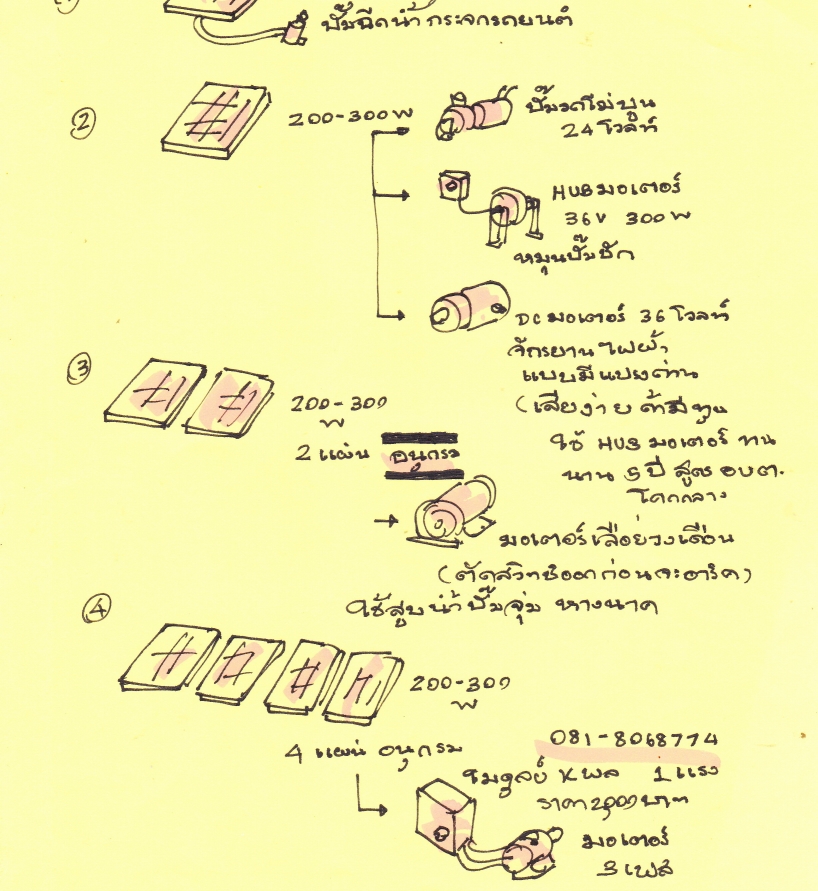 ปั๊มฉีดน้ำ กระจกรถยนต์
②
200-300 W
ปั๊มรดไม่ปูน
24 โวลท์
HUB มอเตอร์
36V 300 W
หมุนปั๊มชัก
DC มอเตอร์ 36 โวลท์
จักรยานไฟฟ้า
แบบมีแปรงถ่าน
(เสียง่าย ถ้ามีทุน
ใช้ HUB มอเตอร์ ทน
นาน 5 ปี สูตร อบต.
โคกกลาง
③
200-300
W
2 แผ่น อนุกรม
มอเตอร์เลื่อยวงเดือน
(ตัดสวิทช์ออกก่อนจะอาร์ค)
ใช้สูบน้ำ ปั๊มจุ่ม หางนาค
④
200-300
W
4 แผ่น อนุกรม
081-8068774
โมดูลย์ 1 แรง
ราคา 2,000 บาท
มอเตอร์
3 เฟส